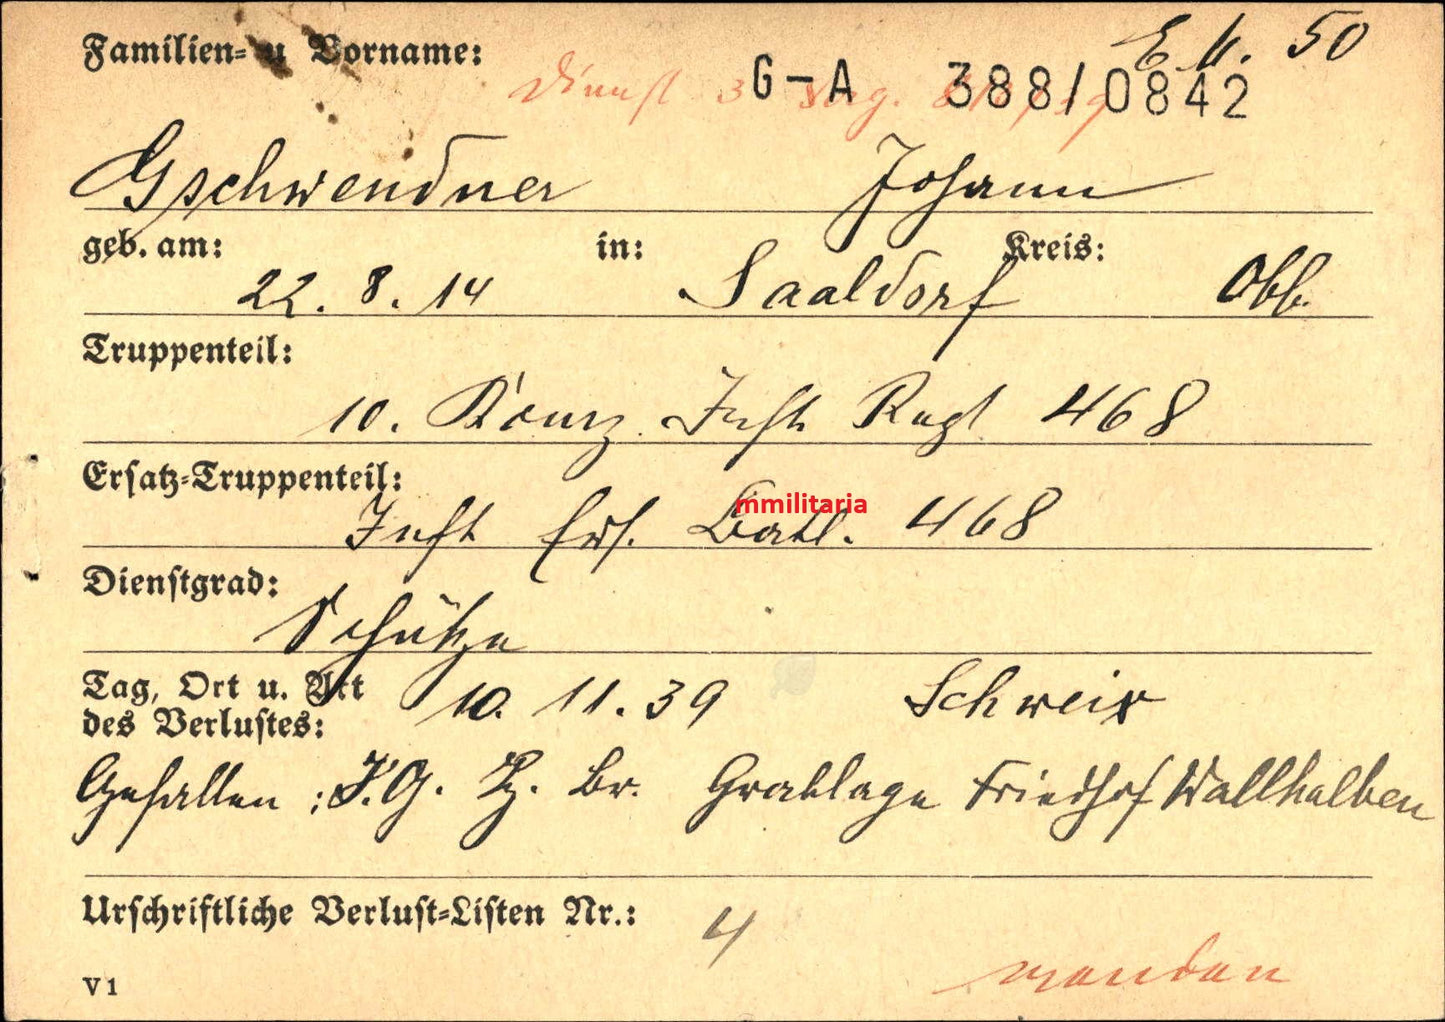 Familien- u Vorname:
E. M. 50
Dienst
G-A 388/0842
Gschwendner Johann
geb. am: in: Kreis:
22. 8. 14 Saaldorf Obb.
Truppenteil:
10. Komp. Inft. Regt 468
Ersatz-Truppenteil:
mmilitaria
Inft Ers. Batl. 468
Dienstgrad:
Schütze
Tag, Ort u. Art
10. 11. 39 Schweix
des Verlustes:
Gefallen : Br. Grablage Friedhof Wallhalben
Urschriftliche Verlust-Listen Nr.: 4
V 1